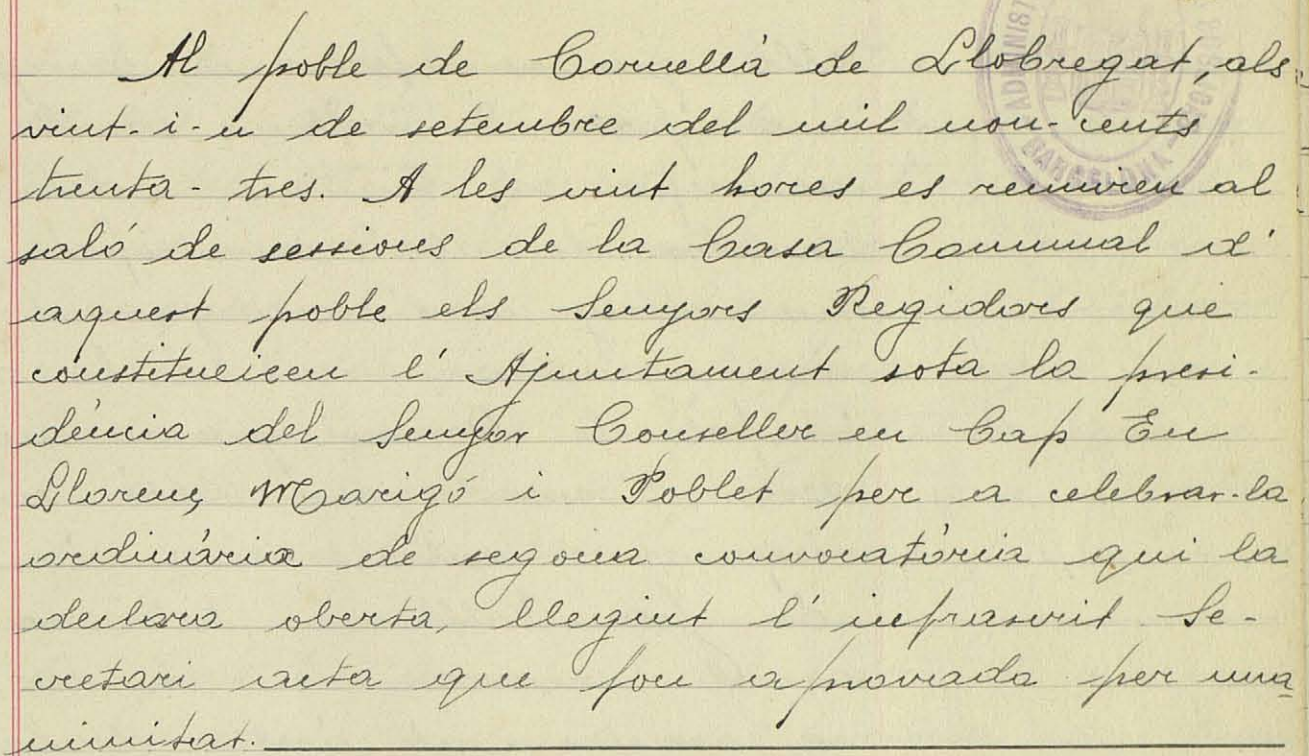 Al poble de Cornellà de Llobregat, als
vint-i-u de setembre del mil nou-cents
trenta-tres. A les vint hores es reuniren al
saló de sessions de la Casa Comunal d'
aquest poble els Senyors Regidors que
constitueicen l'Ajuntament sota la presi-
dència del Senyor Conseller en Cap En
Llorenç Marigó i Poblet per a celebrar-la
ordinària de segona convocatòria qui la
declara oberta, llegint l'infrascrit Se-
cretari acta que fou aprovada per una
nimitat.
BARCELONA